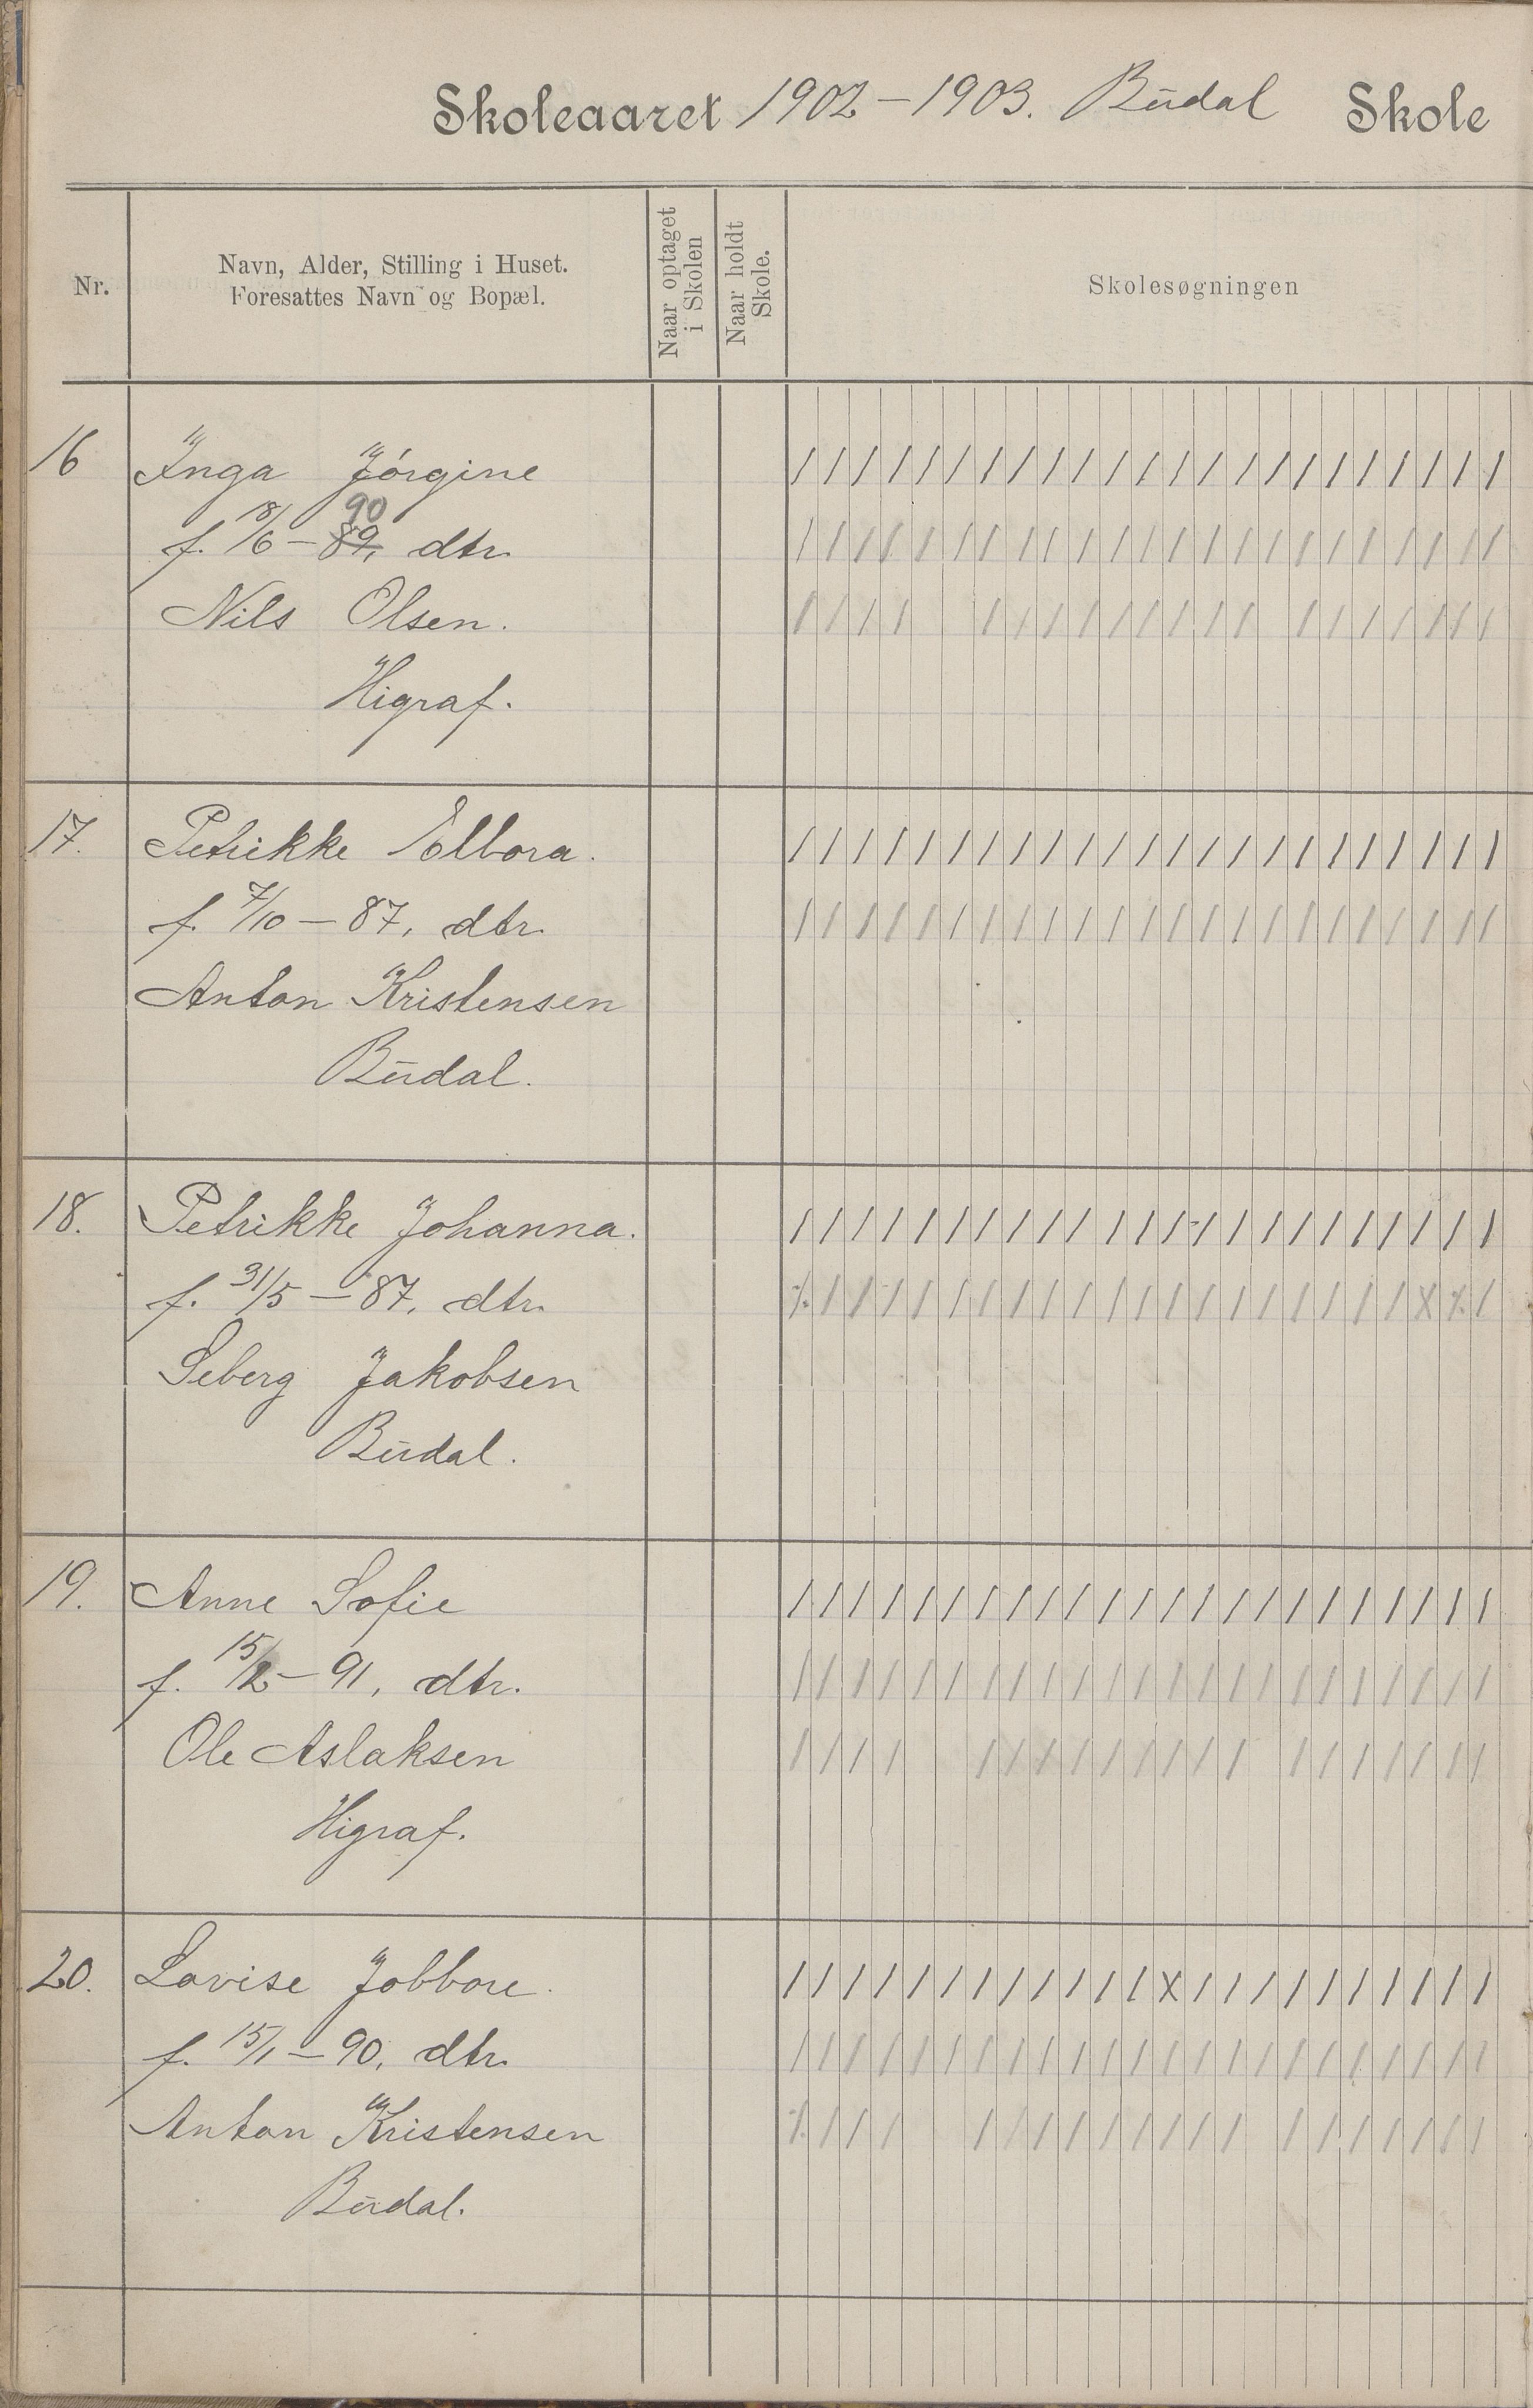 Skoleaaret 1902-1903. Būdal Skole
Nr.
Navn, Alder, Stilling i Huset.
Foresattes Navn og Bopæl.
Naar optaget
i Skolen
Naar holdt
Skole.
Skolesøgningen
16 Inga Jørgine / / / / / / / / / / / / / / / / / / / / / / /
90
f. 18/6 - 89, dtr. / / / / / / / / / / / / / / / / / / / / / / /
Nils Olsen. / / / / / / / / / / / / / / / / / / / /
Higraf.
17. Petrikke Elbora. / / / / / / / / / / / / / / / / / / / / / / /
f. 7/10 - 87, dtr. / / / / / / / / / / / / / / / / / / / / / / /
Anton Kristensen
Būdal.
18. Petrikke Johanna. / / / / / / / / / / / / / / / / / / / / / / /
f. 31/5 - 87, dtr. ⁒ / / / / / / / / / / / / / / / / / / / X ⁒ /
Seberg Jakobsen
Būdal.
19. Anne Sofie / / / / / / / / / / / / / / / / / / / / / / /
f. 15/2 - 91, dtr. / / / / / / / / / / / / / / / / / / / / / / /
Ole Aslaksen / / / / / / / / / / / / / / / / / / / /
Higraf.
20. Lovise Jobbore. / / / / / / / / / / / / X / / / / / / / / / /
f. 15/1 - 90, dtr. / / / / / / / / / / / / / / / / / / / / / / /
Anton Kristensen ⁒ / / / / / / / / / / / / / / / / / / /
Būdal.